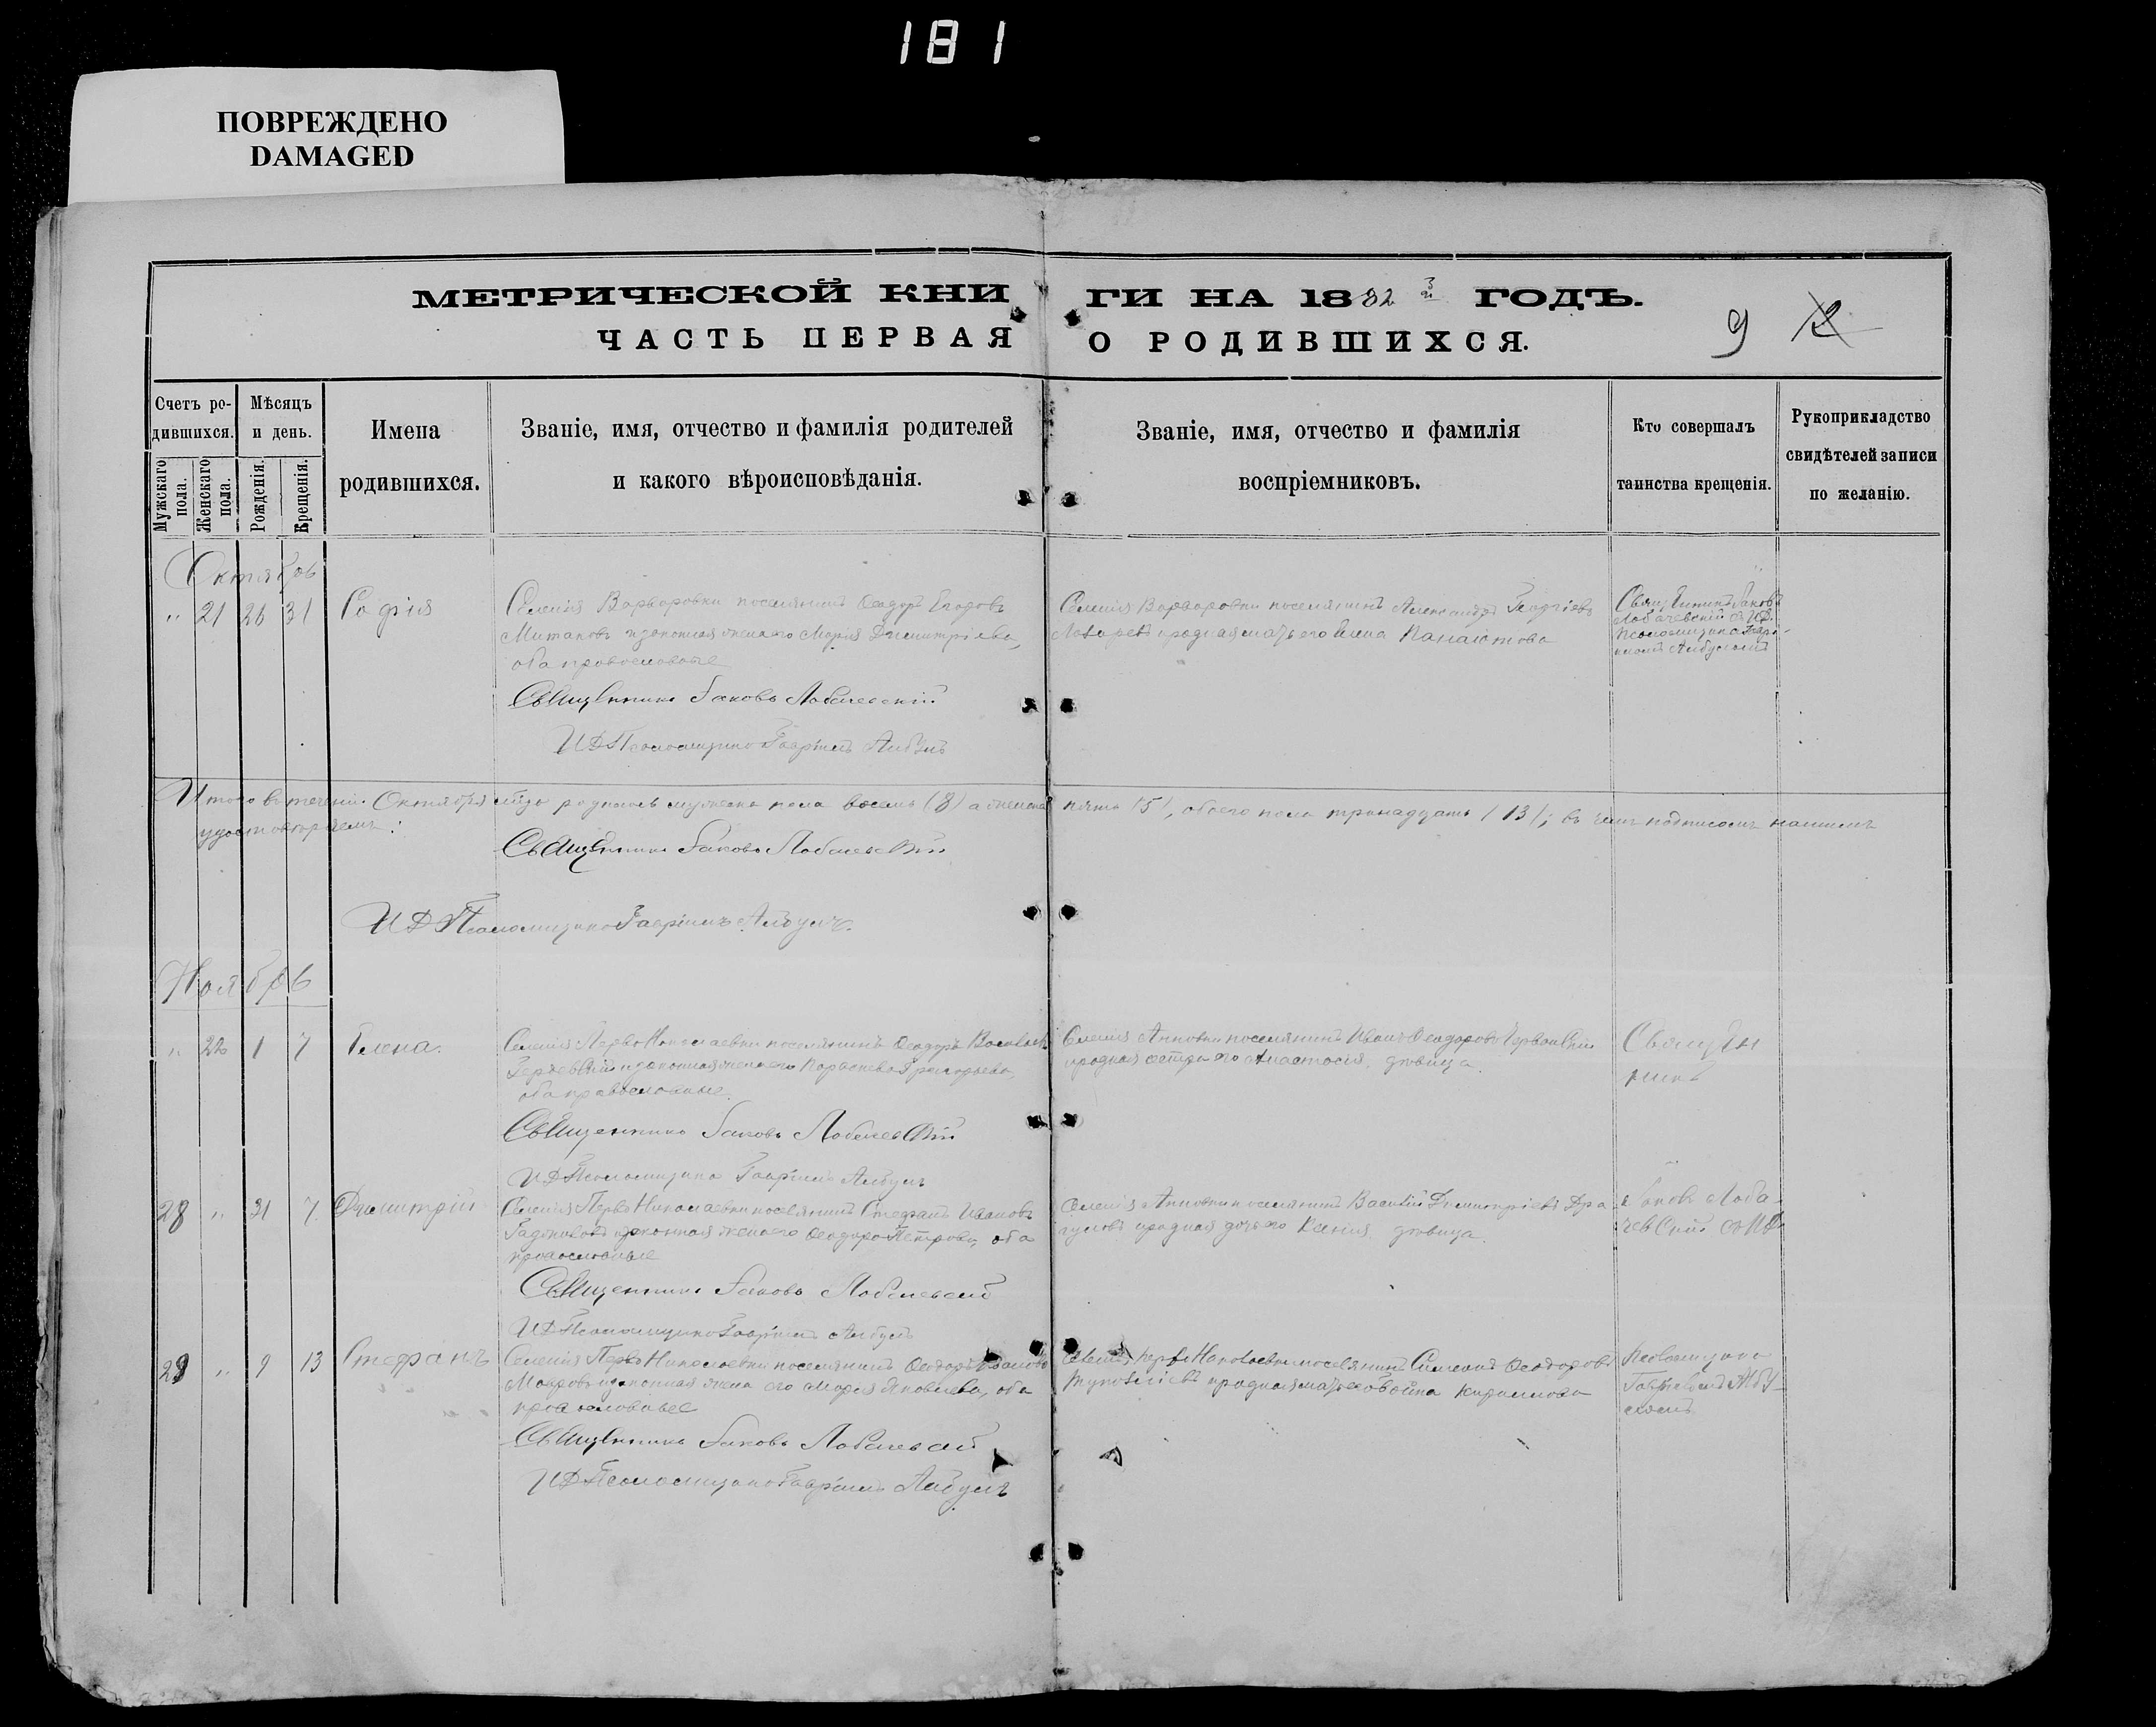 181
ПОВРЕЖДЕНО
DAMAGED
МЕТРИЧЕСКОЙ КНИ ГИ НА 1882 й ГОДЪ.
ЧАСТЬ ПЕРВАЯ О РОДИВШИХСЯ.
9
Счетъ ро-
дившихся.
Мѣсяцъ
и день.
Мужскаго пола.
Женскаго пола.
Рожденія.
Крещенія.
Имена
родившихся.
Званіе, имя, отчество и фамилія родителей
и какого вѣроисповѣданія.
Званіе, имя, отчество и фамилія
воспріемниковъ.
Кто совершалъ
таинства крещенія.
Рукоприкладство
свидѣтелей записи
по желанію.
Октябрь
" 21 26 31 Софія
Селенія Варваровки поселянинъ Ѳеодоръ Егоровъ
Митаковъ и законная жена его Марія Димитріева,
оба православные
Священникъ Іаковъ Лобачевскій
ИД Псаломщика Гавріилъ Албулъ
Селенія Варваровки поселянинъ Александръ Георгіевъ
и родная мать его Елена Панаіотова
Священникъ Іаковъ
Лобачевскій съ ИД.
Псаломщика Гаврі-
Итого въ теченіи Октября м-ца родилось мужска пола восемь (8) а женска пять (5), обоего пола тринадцать (13); въ чемъ подписомъ нашимъ
удостовѣряемъ:
Священникъ Іаковъ Лобачевскій
ИД Псаломщика Гавріилъ Албулъ.
Ноябрь
" 22 1 7 Елена.
Селенія Перво Николаевки поселянинъ Ѳеодоръ Васильевъ
и законная жена его Параскева Григорьева,
оба православные.
Священникъ Іаковъ Лобачевскій
ИД Псаломщика Гавріилъ Албулъ
Селенія Анновки поселянинъ Иванъ Ѳеодоровъ
и родная сестра его Анастасія, дѣвица.
Священ
никъ
28 " 31 7 Димитрій
Селенія Перво Николаевки поселянинъ Стефанъ Ивановъ
и законная жена его Ѳеодора Петрова, оба
православные
Священникъ Іаковъ Лобачевскій
ИД Псаломщика Гавріилъ Албулъ
Селенія Анновки поселянинъ Василій Димитріевъ Дра
гуловъ и родная дочь его Ксенія, дѣвица.
Іаковъ Лоба-
чевскій съ ИД
29 " 9 13 Стефанъ
Селенія Перво Николаевки поселянинъ Ѳеодоръ Ивановъ
Мавровъ и законная жена его Марія Яковлева, оба
православные
Священникъ Іаковъ Лобачевскій
ИД Псаломщика Гавріилъ Албулъ
Селенія Перво Николаевки поселянинъ Симеонъ Ѳеодоровъ
и родная мать его Кириллова
Псаломщика
Гавріиломъ Албу-
ломъ